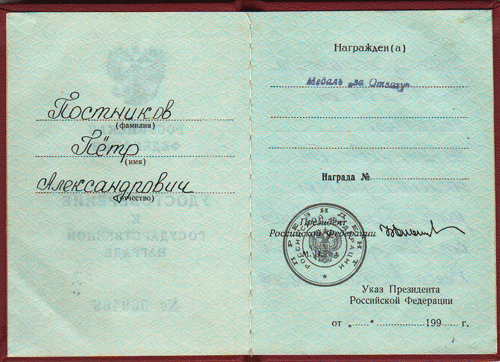 Постников
(фамилия)
Пётр
(имя)
Александрович
(отчество)
Награжден(а)
Медаль „за Отвагу"
Награда №
Президент
Российской Федерации
М.П.
Указ Президента
Российской Федерации
от „ " 199 г.